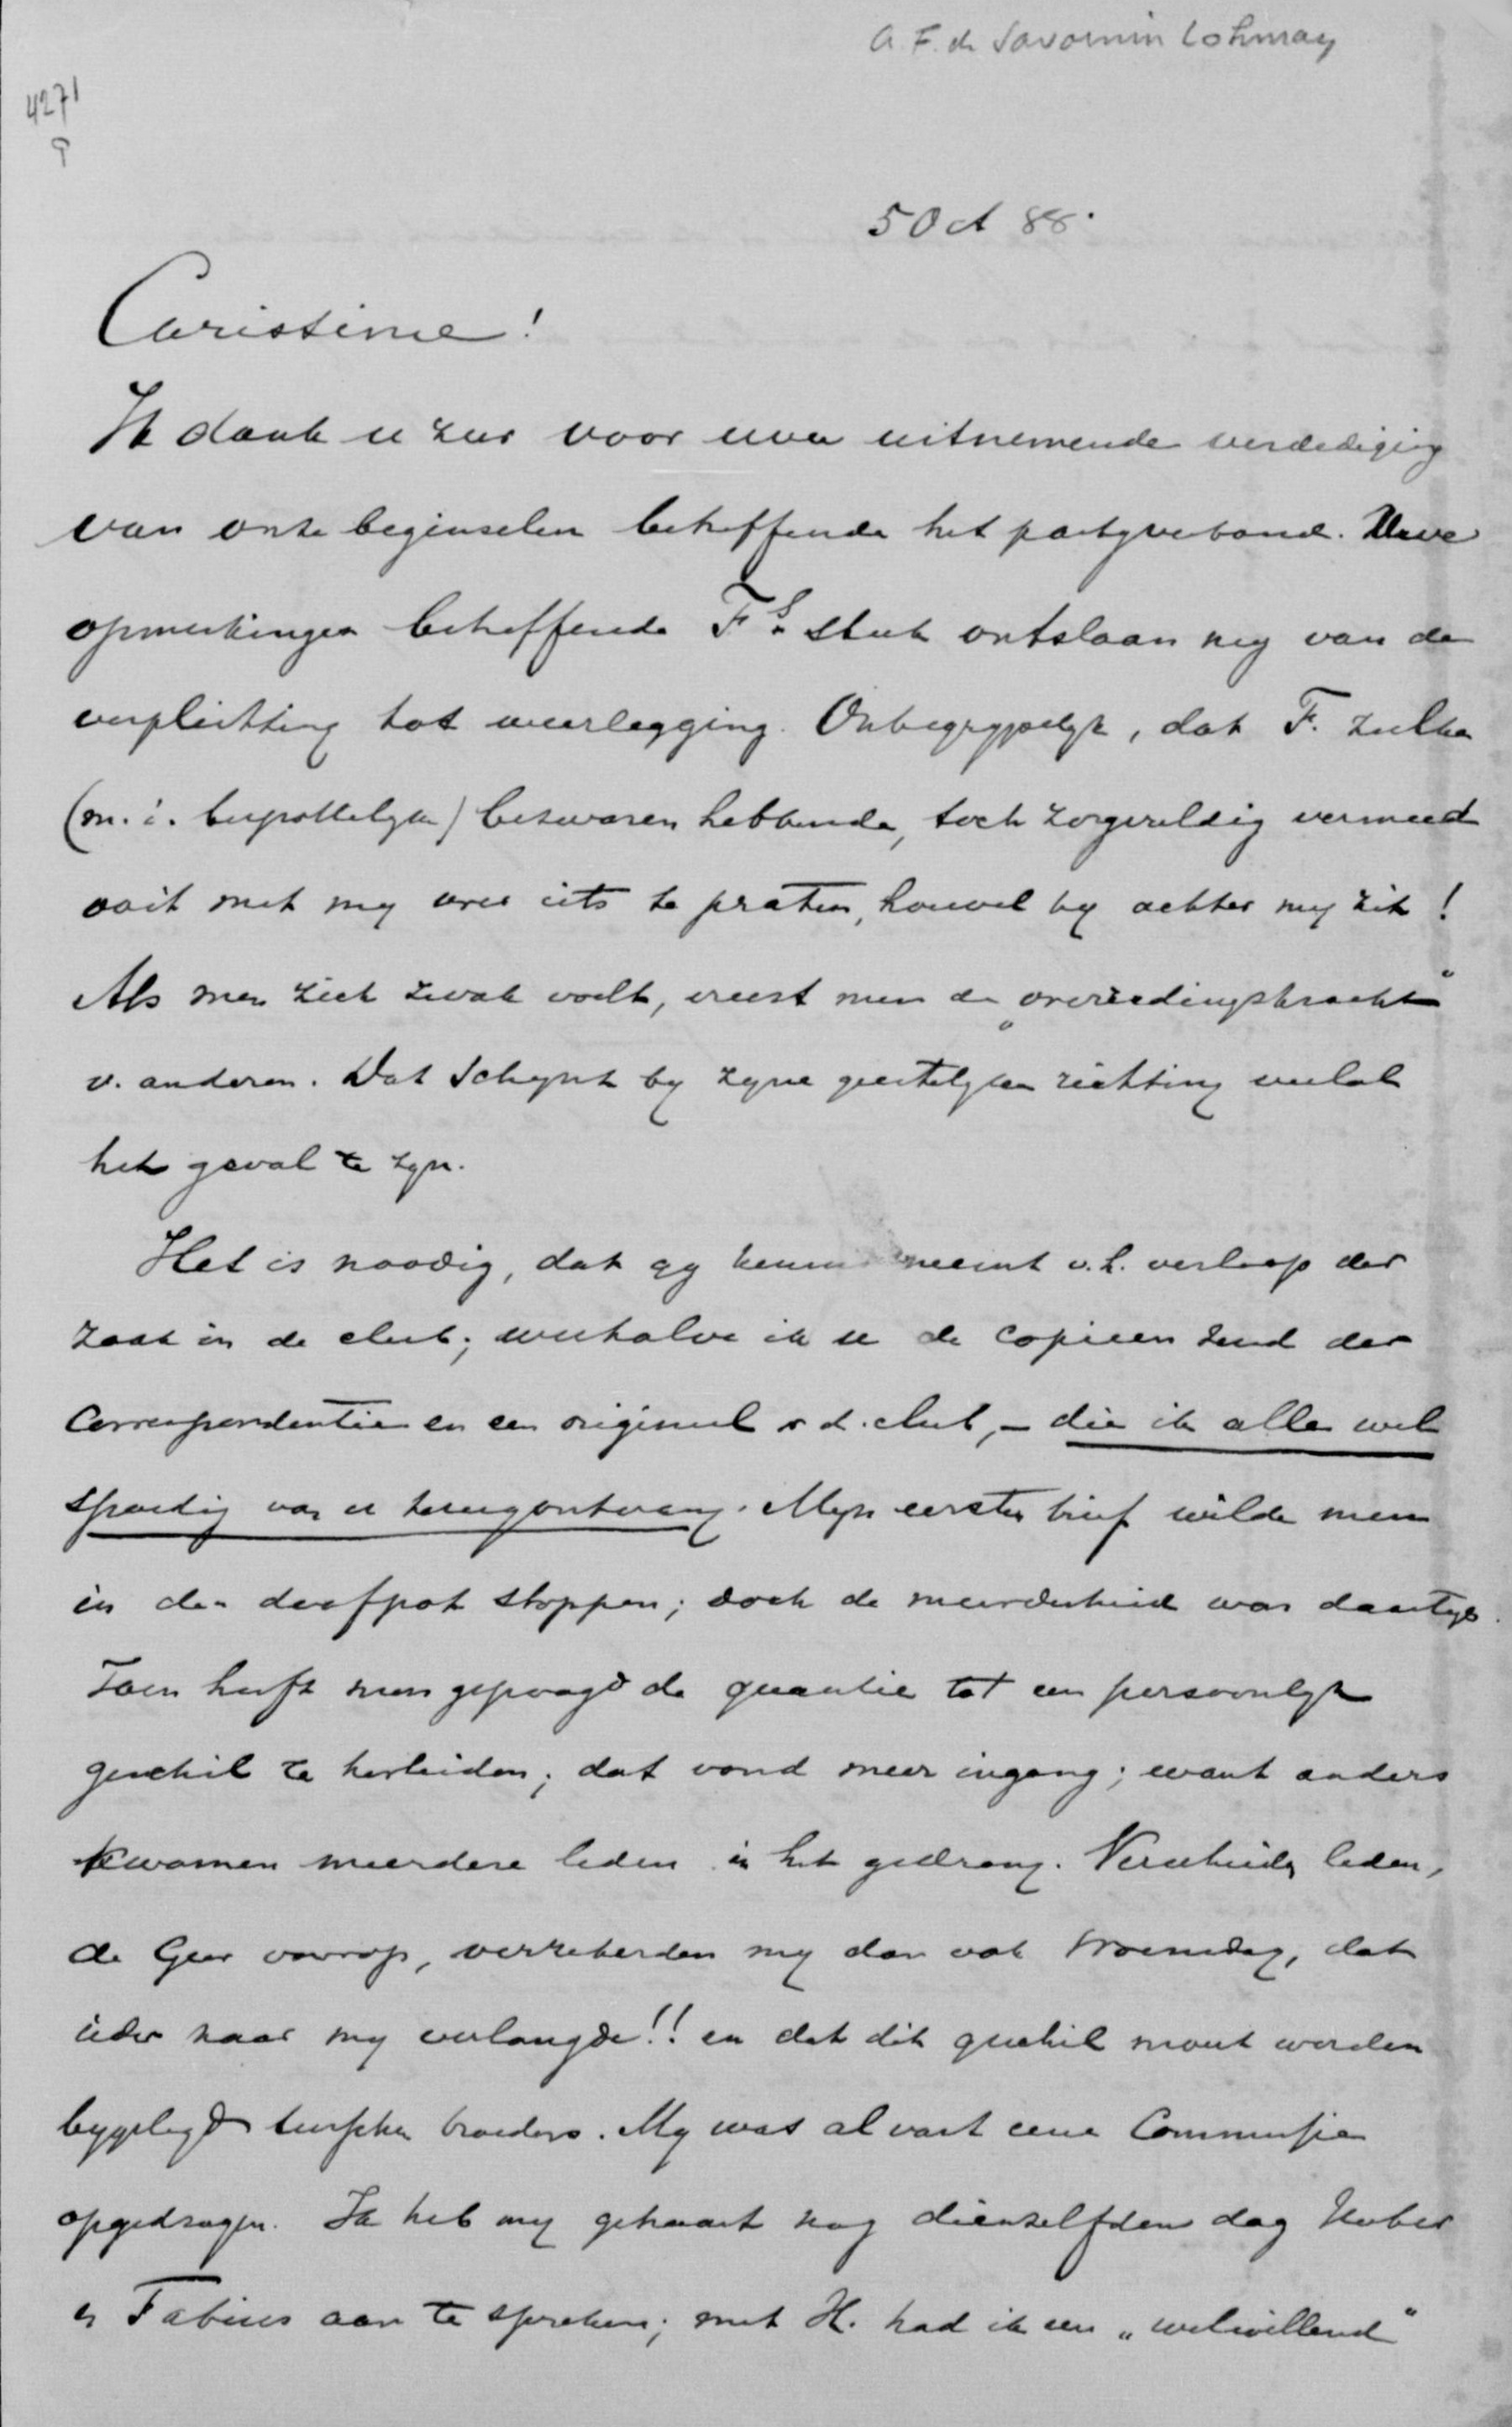 A. F. de Savornin Lohman
4271
P
5 Oct 88.
Carissime!
Ik dank u zeer voor uwe uitnemende verdediging
van onze beginselen betreffende het partyverband. Uwe
opmerkingen betreffende F's stuk ontslaan my van de
verplichting tot weerlegging. Onbegrypelyk, dat F. zulke
(m. i. bespottelyke) bezwaren hebbende, toch zorgvuldig vermeed
ooit met my over iets te praten, hoewel hy achter my zit!
Als men zich zwak voelt, vreest men de „overredingskracht"
v. anderen. Dat schynt by zyne geestelyke richting veelal
het geval te zyn.
Het is noodig, dat gy kennis neemt v. h. verloop der
zaak in de club; weshalve ik u de copieen zend der
Correspondentie en een origineel v d. club, – die ik alle wel
spoedig van u terugontvang. Myn eersten brief wilde men
in den doofpot stoppen; doch de meerderheid was daartegen.
Toen heeft men gepoogd de quaestie tot een persoonlyk
geschil te herleiden; dat vond meer ingang; want anders
kwamen meerdere leden in het gedrang. Verscheiden leden,
de Geer voorop, verzekerden my dan ook Woensdag, dat
ieder naar my verlangde!! en dat dit geschil moest worden
bygelegd tusschen broeders. My was alvast eene Commissie
opgedragen. Ik heb my gehaast nog dienzelfden dag Huber
en Fabius aan te spreken; met H. had ik een „welwillend"